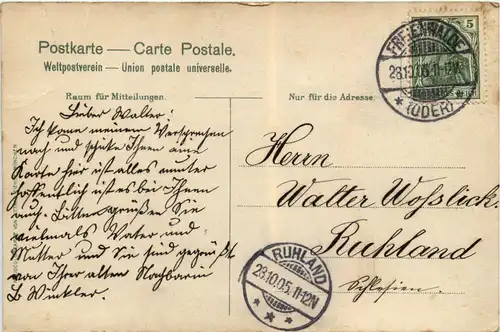 Postkarte — Carte Postale.
Weltpostverein — Union postale universelle.
Raum für Mitteilungen.
Nur für die Adresse.
5
FREIENWALDE
23.10.05. 11-12V
* (ODER) *
Lieber Walter!
Ich kom meinem Versprechen
nach und schike Ihnen eine
Karte hier ist alles munter
hoffentlich ist es bei Ihnen
auch. Bitte grüßen Sie
vielmals Vater und
Mutter und Sie sind gegrüßt
von Ihrer alten Nachbarin
B Winkler.
Herrn
Walter Wosslick
Ruhland
Schlesien.
RUHLAND
23.10.05. 11-12N
* * *